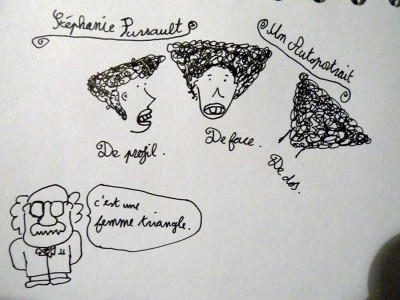 Stéphanie Pussault
Un Autoportrait
De profil.
De face.
De dos.
c'est une
femme triangle.